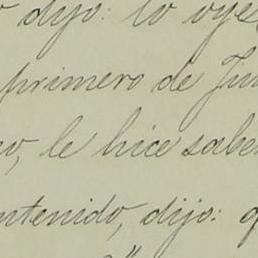 dijo: lo oye
primero de Ju
le hice saber
ntenido, dijo: q